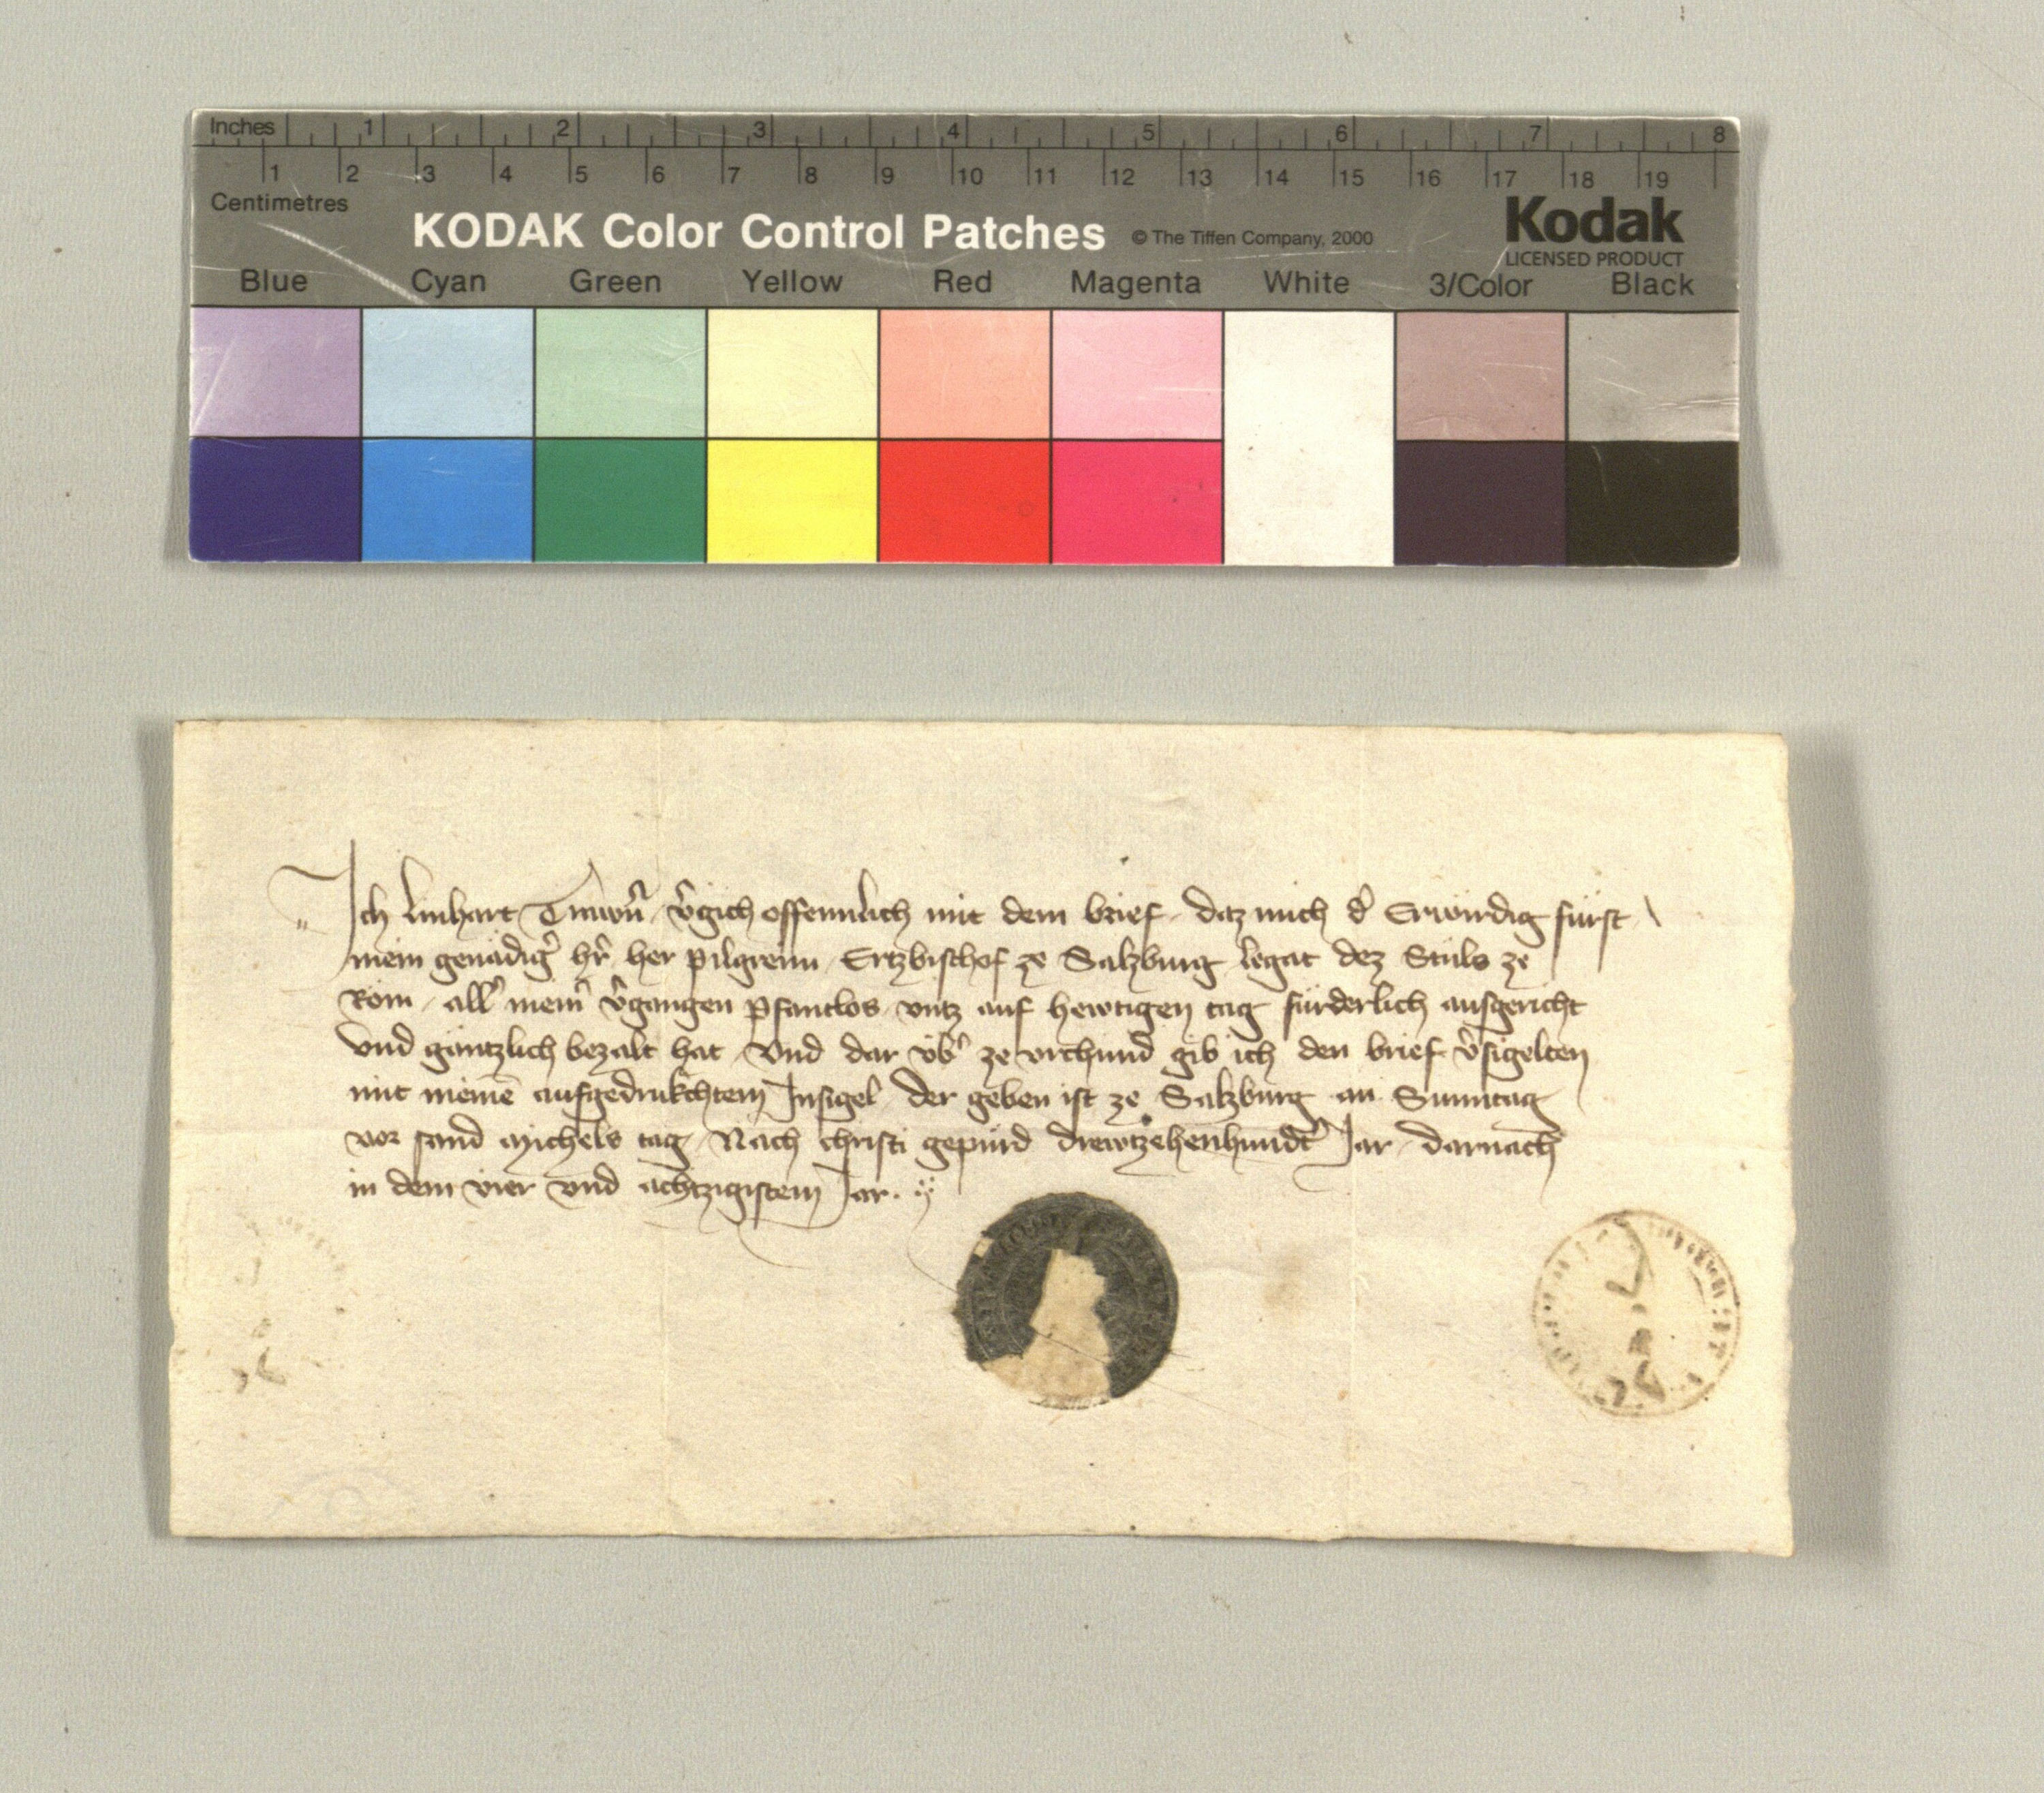 Inches 1 2 3 4 5 6 7 8
1 2 3 4 5 6 7 8 9 10 11 12 13 14 15 16 17 18 19
Centimetres
KODAK Color Control Patches © The Tiffen Company, 2000 Kodak
LICENSED PRODUCT
Blue Cyan Green Yellow Red Magenta White 3/Color Black
Ich Linhart v̾gich offennlich mit dem brief daz mich d̾ Erwirdig fürst
mein genädig̾ hr̾ her Pilgreim Ertzbischof ze Salzburg legat dez Stuls ze
Rom all̾ mein̾ v̾gangen Pfantlos untz auf hewtigen tag fürderlich ausgericht
und gäntzlich bezalt hat Und dar üb̾ ze urchund gib ich den brief v̾sigelten
mit meinē aufgedrukchtem Insigel der geben ist ze Salzburg an Sunntag
vor sand Michels tag Nach christi gepurd drewtzehenhundt̾ Jar darnach
in dem vier und achtzigistem Jar.